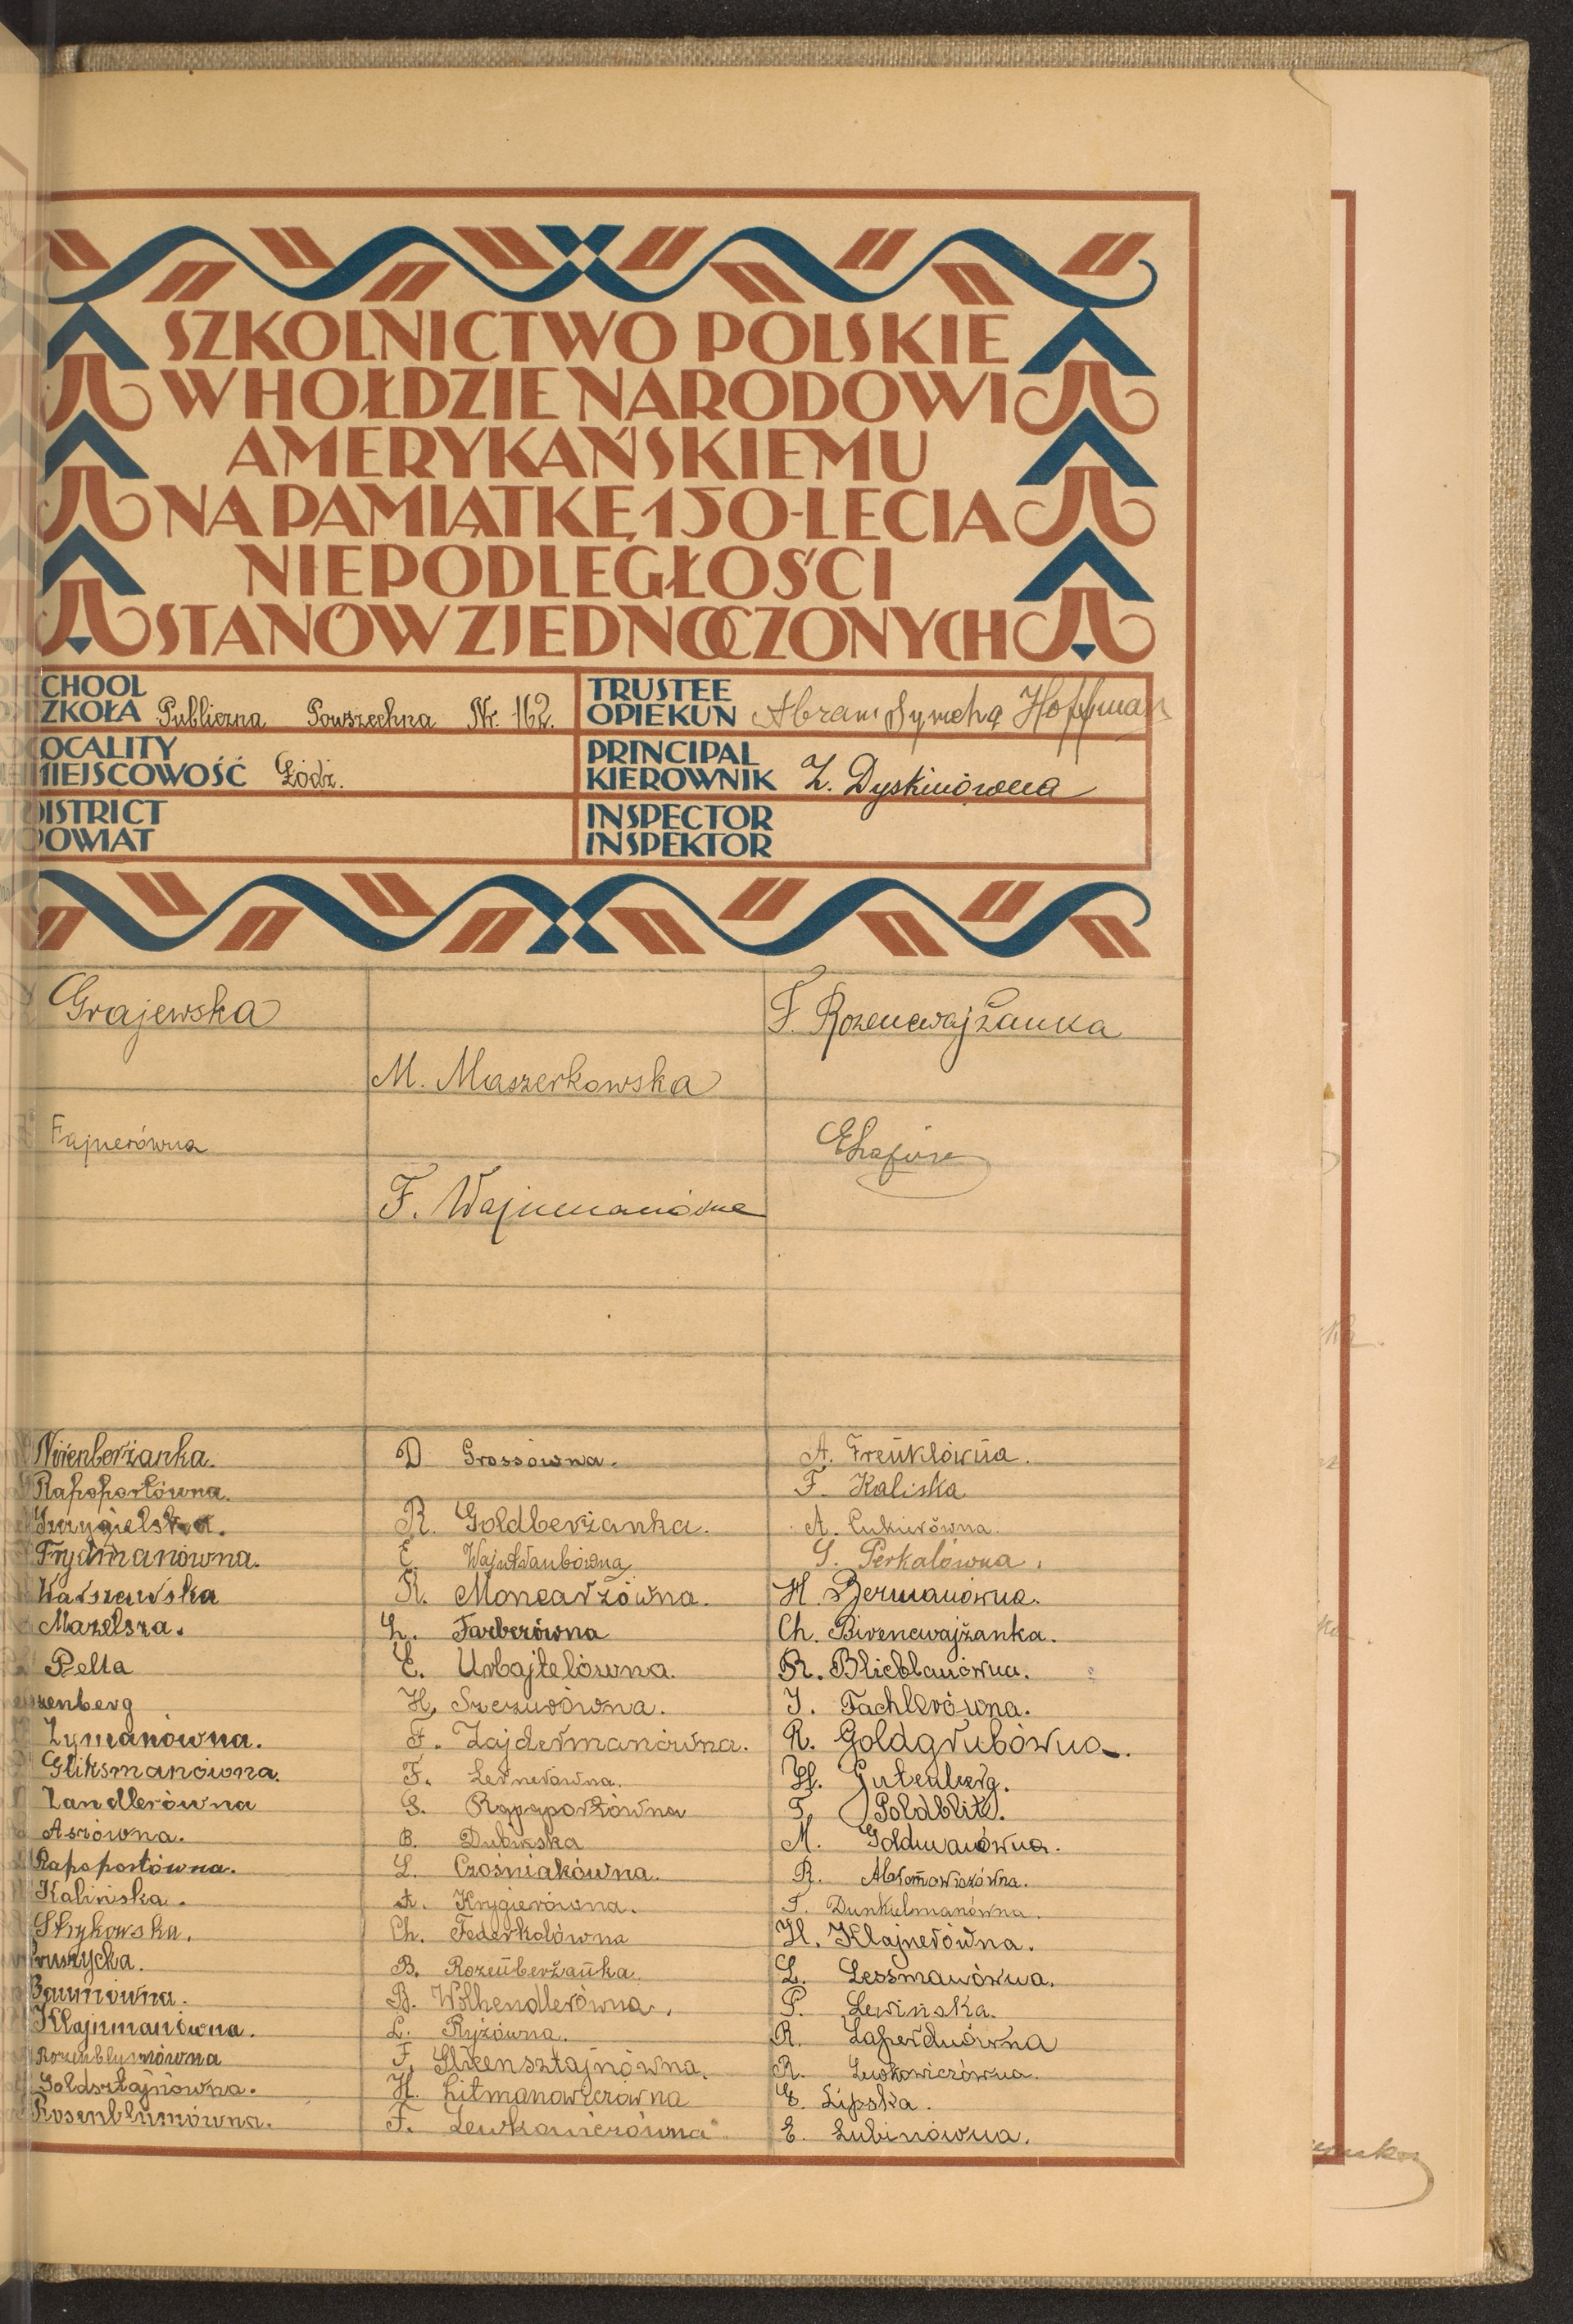 SZKOLNICTWO POLSKIE
W HOŁDZIE NARODOWI
AMERYKAŃSKIEMU
NA PAMIĄTKĘ 150-LECIA
NIEPODLEGŁOŚCI
STANÓW ZJEDNOCZONYCH
CHOOL
ZKOŁA Publiczna Powszechna Nr. 162.
TRUSTEE
OPIEKUN Abram Symcha Hoffman
OCALITY
MIEJSCOWOŚĆ Łódź.
PRINCIPAL
KIEROWNIK Z. Dyskinówna
DISTRICT
POWIAT
INSPECTOR
INSPEKTOR
Grajewska
F. Rozencwajżanka
M. Maszerkowska
Fajnerówna
F. Wajnmanówna
Nirenberżanka. D Grossówna. A. Frenklówna.
Rapoportówna. F. Kaliska
R. Goldberżanka. A. Cukierówna.
Frydmanówna. E. Wajntraubówna S. Perkalówna.
Warszawska R. Moncarzówna. H. Bermanówna.
Mazelsza. L. Farberówna Ch. Birencwajżanka.
Pella E. Urbajtelówna. R. Blicblauówna.
zenberg H. Szczurówna. I. Fachlerówna.
Zymanówna. F. Zajdermanówna. R. Goldgrubówna.
Gliksmanówna. F. Lernerówna. H. Gutenberg.
Zandlerówna S. Rapaportówna F. Goldblit.
Aszówna. B. Dubinska M. Goldmanówna.
Rapoportówna. L. Czośniakówna. R. Abramowiczówna.
Kalinska. A. Krygierówna. F. Dunkielmanówna.
Strykowska. Ch. Federkolówna H. Klajnerówna.
ruszycka. B. Rozenberżanka. L. Lessmanówna.
Baumówna. B. Wolhendlerówna. P. Lewinska.
Klajnmanówna. L. Ryżówna. R. Laferdnówna
Rozenblumówna F. Glicensztajnówna. R. Lewkowiczówna.
Goldsztajnówna. H. Litmanowiczówna E. Lipska.
Rosenblumówna. F. Lewkowiczówna E. Lubinówna.